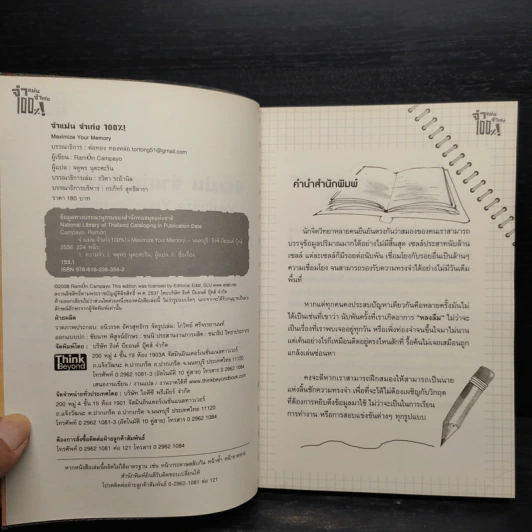 จำแม่น
จำเก่ง
100%!
จำแม่น จำเก่ง 100%!
Maximize Your Memory
บรรณาธิการ : ต่อทอง ทองหล่อ tortong51@gmail.com
ผู้เขียน : Ramón Campayo
ผู้แปล : จตุพร
บรรณาธิการเล่ม :
บรรณาธิการบริหาร :
ราคา 180 บาท
ข้อมูลทางบรรณานุกรมของสำนักหอสมุดแห่งชาติ
National Library of Thailand Cataloging in Publication Data
Campayo, Ramón
จำแม่น จำเก่ง 100%! = Maximize Your Memory.-- นนทบุรี : ธิงค์ บียอนด์ บุ๊คส์,
153.1
©2008 Ramón Campayo This edition was licensed by Editorial Edaf, SLU www.edaf.net
ฝ่ายผลิต
จัดพิมพ์โดย : บริษัท ธิงค์ บียอนด์ บุ๊คส์ จำกัด
Think
Beyond
200 หมู่ 4 ชั้น 19 ห้อง 1903A จัสมินอินเตอร์เนชั่นแนลทาวเวอร์
ถ.แจ้งวัฒนะ ต.ปากเกร็ด อ.ปากเกร็ด จ.นนทบุรี 11120
โทรศัพท์ 0 2962 1081-3 (อัตโนมัติ 10 คู่สาย) โทรสาร 0 2962 1084
เสนองานเขียน / งานแปล : www.thinkbeyondbook.com
จัดจำหน่ายทั่วประเทศโดย : บริษัท ไอดีซี พรีเมียร์ จำกัด
200 หมู่ 4 ชั้น 19 ห้อง 1901 จัสมินอินเตอร์เนชั่นแนลทาวเวอร์
ถ.แจ้งวัฒนะ ต.ปากเกร็ด อ.ปากเกร็ด จ.นนทบุรี 11120
โทรศัพท์ 0 2962 1081-3 (อัตโนมัติ 10 คู่สาย) โทรสาร 0 2962 1084
ต้องการสั่งซื้อติดต่อฝ่ายลูกค้าสัมพันธ์
โทรศัพท์ 0 2962 1081 ต่อ 121 โทรสาร 0 2962 1084
หากหนังสือเล่มนี้ผลิตไม่ได้มาตรฐาน เช่น หน้ากระดาษสลับกัน หน้าซ้ำ หน้าขาดหาย
สำนักพิมพ์ยินดีรับผิดชอบเปลี่ยนให้
โปรดติดต่อฝ่ายลูกค้าสัมพันธ์ 0-2962-1081 ต่อ 121
จำแม่น
จำเก่ง
100%!
คำนำสำนักพิมพ์
นักจิตวิทยาหลายคนยืนยันตรงกันว่าสมองของคนเราสามารถ
บรรจุข้อมูลปริมาณมากได้อย่างไม่มีสิ้นสุด เซลล์ประสาทนับล้าน
เซลล์ แต่ละเซลล์ก็มีรอยต่อนับพัน เชื่อมโยงกับรอยอื่นเป็นล้านๆ
ความเชื่อมโยง จนสามารถรองรับความทรงจำได้อย่างไม่มีวันเต็ม
พื้นที่
หากแต่ทุกคนคงประสบปัญหาเดียวกันคือหลายครั้งมันไม่
ได้เป็นเช่นที่เขาว่า นับพันครั้งที่เราเกิดอาการ "หลงลืม" ไม่ว่าจะ
เป็นเรื่องที่เราพบเจออยู่ทุกวัน หรือเพิ่งท่องจำจนขึ้นใจมาไม่นาน
แต่เค้นอย่างไรก็เหมือนติดอยู่ตรงไหนสักที่ รื้อค้นไม่เจอเสมือนถูก
แกล้งเล่นซ่อนหา
คงจะดีหากเราสามารถฝึกสมองให้สามารถเป็นนาย
แห่งลิ้นชักความทรงจำ เพื่อที่จะได้ไม่ต้องเผชิญกับวิกฤต
ที่ต้องการหยิบดึงข้อมูลมาใช้ ไม่ว่าจะเป็นในการเรียน
การทำงาน หรือการสอบแข่งขันต่างๆ ทุกรูปแบบ